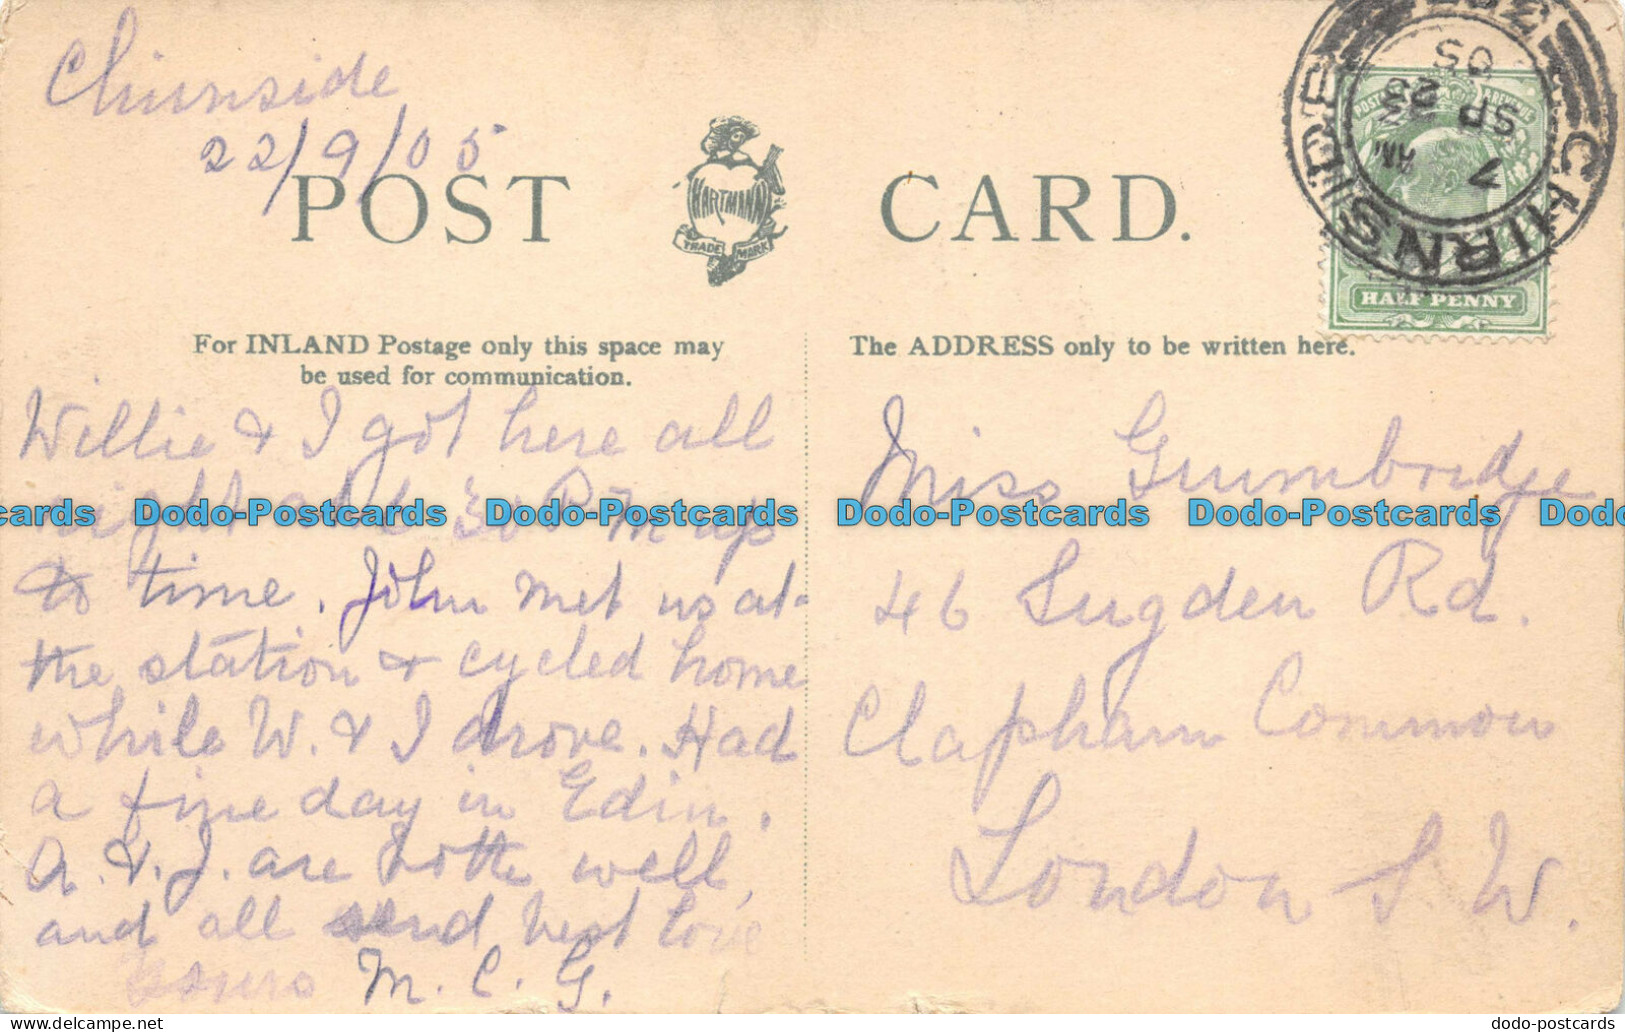 Chirnside
22/9/05
POST CARD.
HARTMANN
TRADE MARK
CHIRNSIDE
7 AM
SP 23
05
POSTAGE & REVENUE
HALF PENNY
For INLAND Postage only this space may
be used for communication.
The ADDRESS only to be written here.
Willie & I got here all
right at 6 30 P M up
to time. John met us at
the station & cycled home
while W. & I drove. Had
a fine day in Edin.
A. & J. are both well,
and all send best love
Yours M. C. G.
Miss Grumbridge
46 Sugden Rd.
Clapham Common
London S. W.
Dodo-Postcards Dodo-Postcards Dodo-Postcards Dodo-Postcards
dodo-postcards